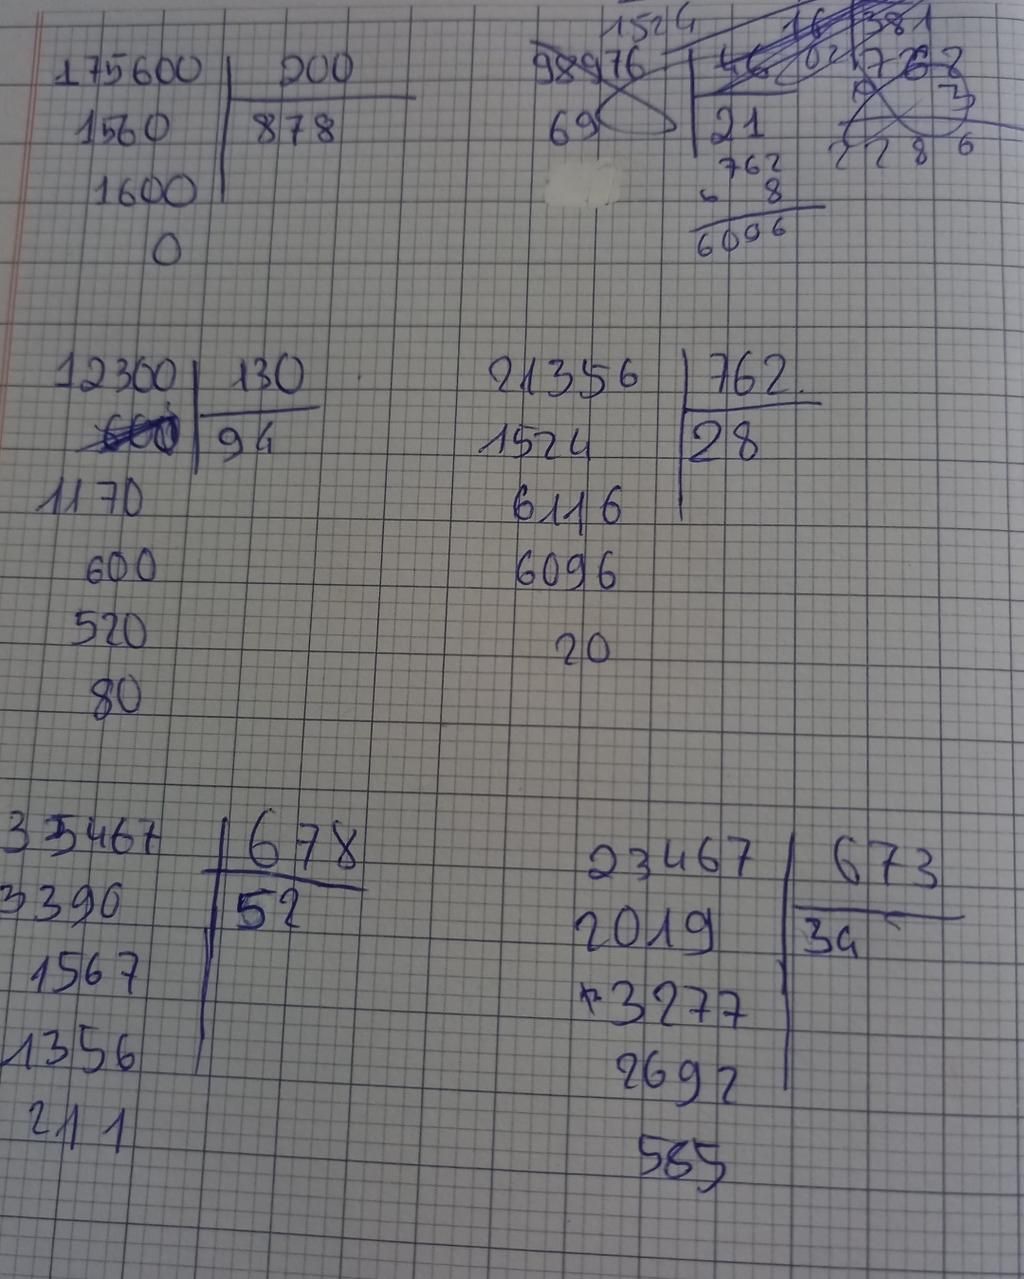 175600 200
1560 878
1600
0
1524
98976 46
69 21
16 381
02 762
3
2286
762
8
6096
12300 130
600 94
1170
600
520
80
21356 762
1524 28
6116
6096
20
35467 678
3390 52
1567
1356
211
23467 673
2019 34
3277
2692
585